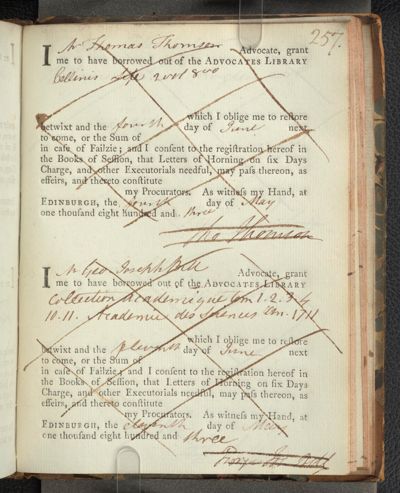 257.
I Mr Thomas Thomson Advocate, grant
me to have borrowed out of the ADVOCATES LIBRARY
Cellinis Life 2 vol 8vo
which I oblige me to reſtore
betwixt and the fourth day of June next
to come, or the Sum of
in caſe of Failzie; and I conſent to the regiſtration hereof in
the Books of Seſſion, that Letters of Horning on ſix Days
Charge, and other Executorials needful, may paſs thereon, as
effeirs, and thereto conſtitute
my Procurators. As witneſs my Hand, at
EDINBURGH, the fourth day of May
one thouſand eight hundred and three
Tho Thomson
I Mr Geo Joseph Bell Advocate, grant
me to have borrowed out of the ADVOCATES LIBRARY
Collection Academique tom 1. 2. 3. 4
10. 11. Academie des Sciences 1711
which I oblige me to reſtore
betwixt and the Eleventh day of June next
to come, or the Sum of
in caſe of Failzie; and I conſent to the regiſtration hereof in
the Books of Seſſion, that Letters of Horning on ſix Days
Charge, and other Executorials needful, may paſs thereon, as
effeirs, and thereto conſtitute
my Procurators. As witneſs my Hand, at
EDINBURGH, the eleventh day of May
one thouſand eight hundred and three
Bell